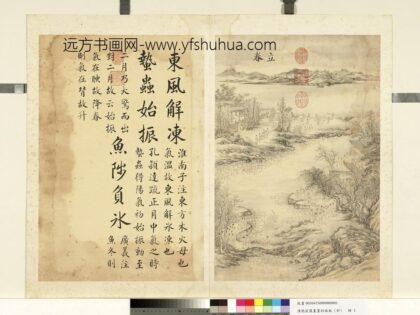 远方书画网-www.yfshuhua.com
立春
東風解凍
淮南子注東方木火母也
氣温故東風解凍也
蟄蟲始振
孔穎達疏正月中氣之時
蟄蟲得陽氣初始振動至
二月乃大驚而出
對二月故云始振
魚陟負冰
廣義注
魚冬則
氣在腴故降春
則氣在背故升